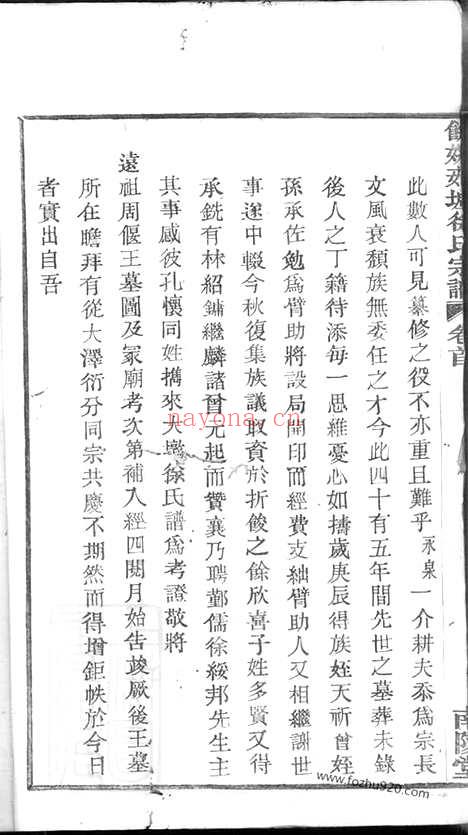 餘姚
徐氏宗譜
卷首
此數人可見纂修之役不亦重且難乎永泉一介耕夫忝爲宗長
文風衰頹族無委任之才今此四十有五年間先世之墓葬未錄
後人之丁籍待添每一思維憂心如擣歲庚辰得族姪天祈曾姪
孫承佐勉爲臂助將設局開印而經費支絀臂助人又相繼謝世
事遂中輟今秋復集族議取資於折餕之餘欣喜子姓多賢又得
承銑有林紹鏞繼麟諸曾元起而贊襄乃聘鄞儒徐綏邦先生主
其事感彼孔懷同姓攜來大墩徐氏譜爲考證敬將
遠祖周偃王墓圖及冢廟考次第補入經四閱月始告竣厥後王墓
所在瞻拜有從大澤衍分同宗共慶不期然而得增鉅帙於今日
者實出自吾
南陔堂
nayona.cn
www.fozhu920.com